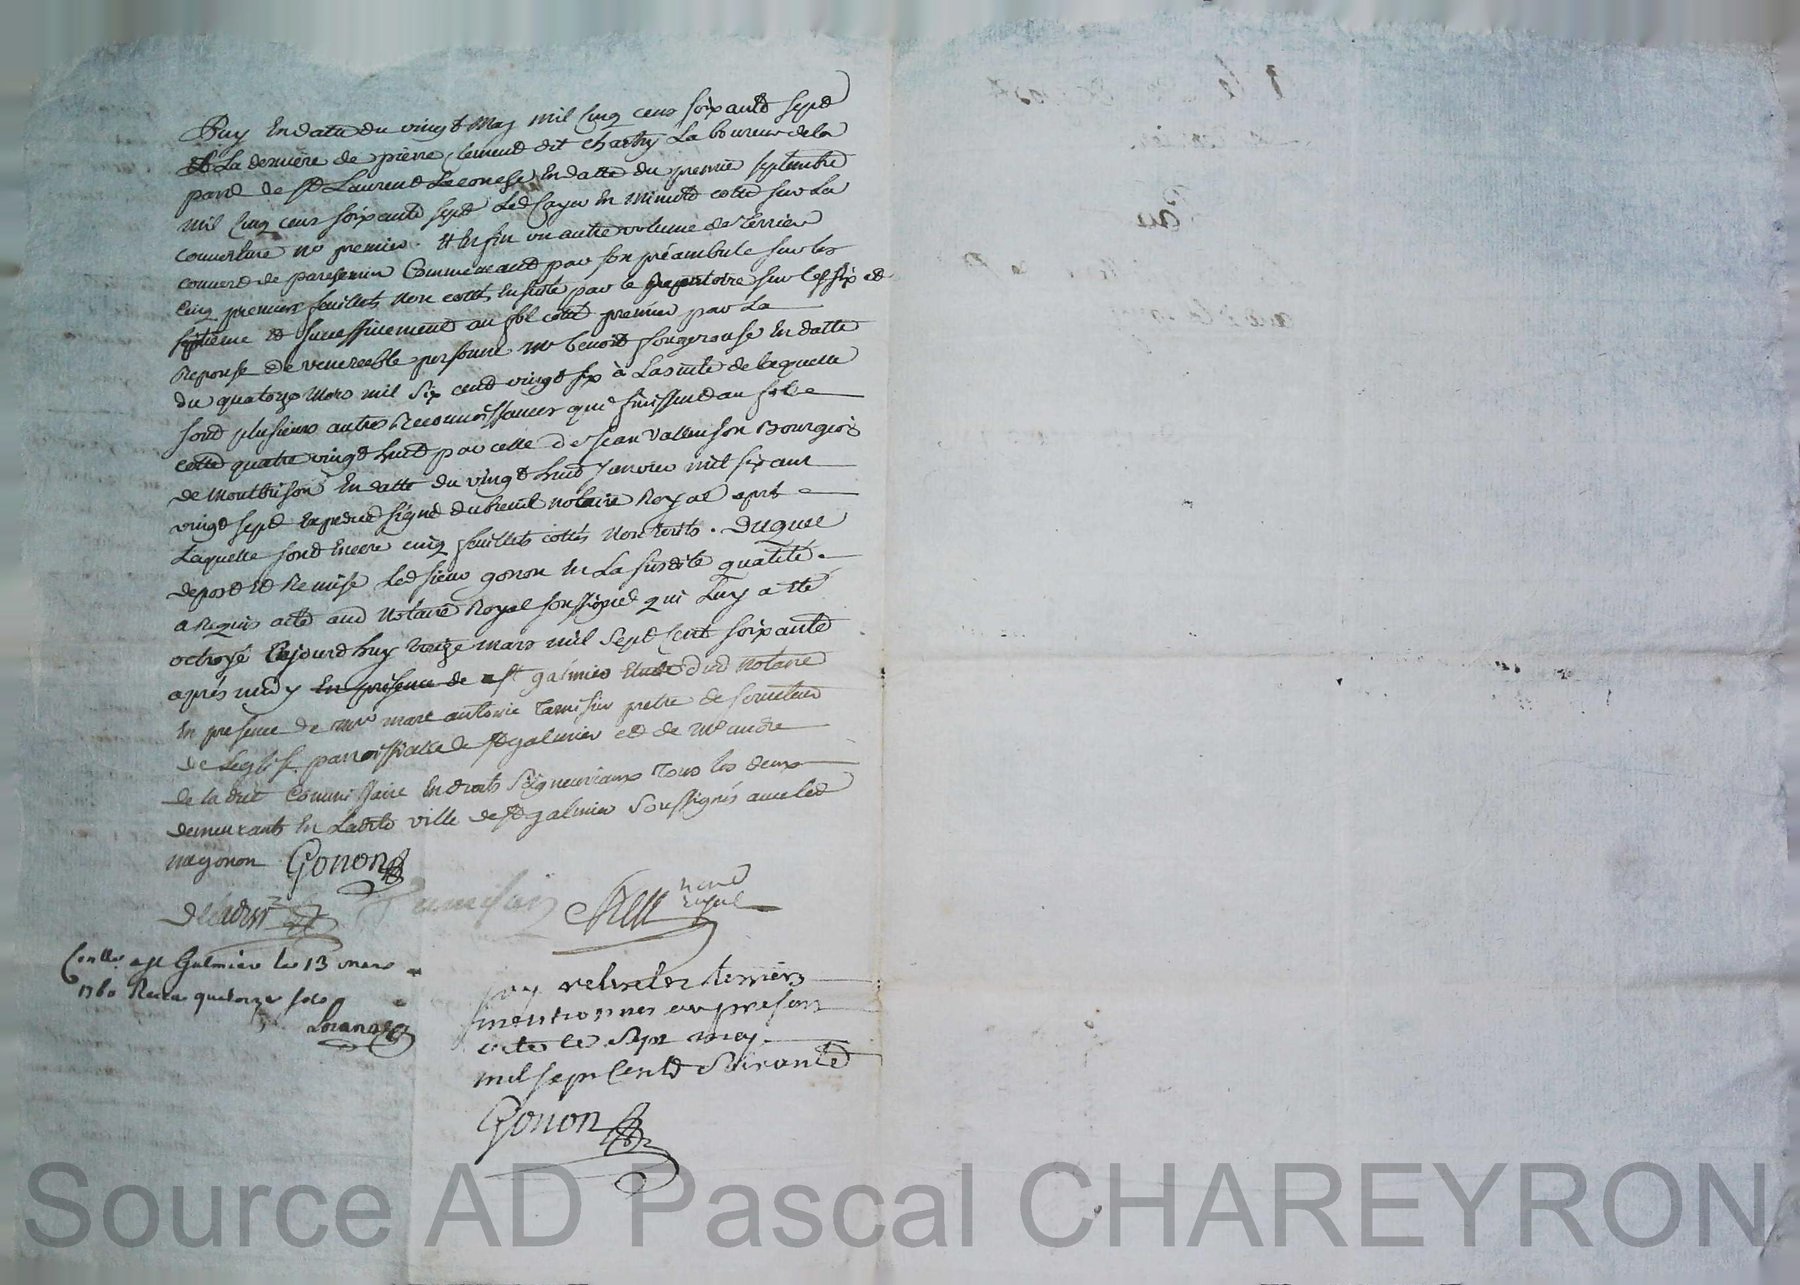 Puy En datte du vingt May mil Cinq cens soixante sept
Et La derniere de pierre Clement dit Chartry Laboureur de la
paro de St Laurend La conche En datte du premier septembre
mil Cinq cens soixante sept Led Cayer En minute cotté sur La
couverture no premier. Et Enfin un autre volume de Terrier
couvert de parchemin Commencant par son préambule sur les
Cinq premiers feuillets Non cottés Ensuite par le Repertoire sur les six et
septieme et successivement au fol cotté premier par La
Reponse de venerable personne Mre benoit fougerouse En datte
du quatorze Mars mil six cent vingt six à La suite de laquelle
sont plusieurs autres Reconnoissances qui finissent au folio
cotté quatre vingt huit par celle de Jean Valenson Bourgeois
de Montbrison En datte du vingt huit Janvier mil six cent
vingt sept Expedié signé dubreuil notaire Royal aprés
Laquelle sont Encore cinq feuillets cottés Non Ecrits. Duquel
depost Et Remise Led sieur gonon En La susditte qualité
a Requis acte aud Notaire Royal soussigné qui Luy a eté
octroyé Aujourd huy treize mars mil sept cent soixante
aprés midy En presence de a St galmier Etude dud Notaire
En presence de Mre marc antoine Tamisier pretre de
de Leglise parroissialle de St galmier et de Me andre
de la Commissaire En droits seigneuriaux Tous les deux
demeurants En Laditte ville de St galmier soussignés avec led
me gonon Gonon
Tamisier
notre
royal
Conllé a St Galmier le 13 mars
1760 Recu quatorze sols
jay retiré les terriers
mentionnés au present
acte ce sept may
mil sept cent soixante
Gonon
Source AD Pascal CHAREYRON